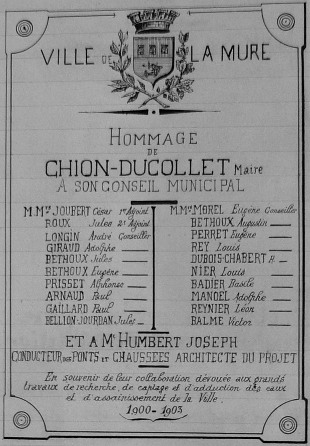 VILLE DE LA MURE
HOMMAGE
DE
CHION-DUCOLLET Maire
A SON CONSEIL MUNICIPAL
M.Mrs JOUBERT César 1er Adjoint
ROUX Jules 2e Adjoint
LONGIN André Conseiller
GIRAUD Adolphe —
BETHOUX Jules —
BETHOUX Eugène —
PRISSET Alphonse —
ARNAUD Paul —
GAILLARD Paul —
BELLION-JOURDAN Jules —
M.Mrs MOREL Eugène Conseiller
BETHOUX Augustin —
PERRET Eugène —
REY Louis —
DUBOIS-CHABERT H. —
NIER Louis —
BADIER Basile —
MANOEL Adolphe —
REYNIER Léon —
BALME Victor —
ET A Mr HUMBERT JOSEPH
CONDUCTEUR DES PONTS ET CHAUSSÉES ARCHITECTE DU PROJET
En souvenir de leur collaboration dévouée aux grands
travaux de recherche, de captage et d'adduction des eaux
et d'assainissement de la Ville.
1900-1903